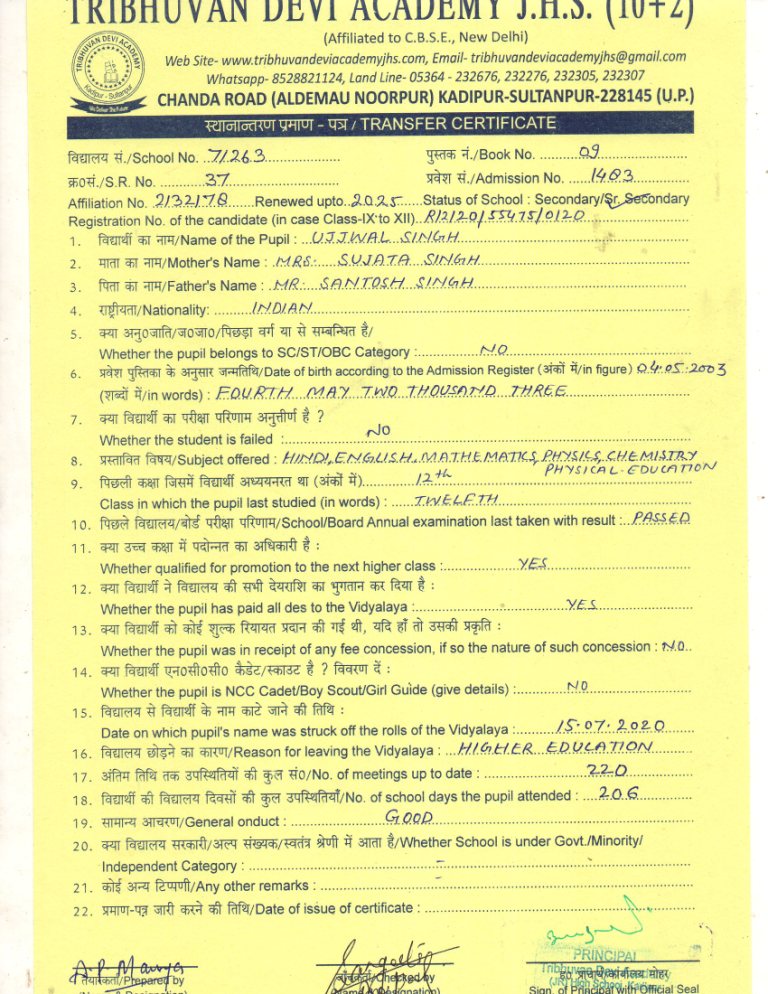 TRIBHUVAN DEVI ACADEMY J.H.S. (10+2)
(Affiliated to C.B.S.E., New Delhi)
TRIBHUVAN DEVI ACADEMY
Kadipur - Sultanpur
Web Site- www.tribhuvandeviacademyjhs.com, Email- tribhuvandeviacademyjhs@gmail.com
Whatsapp- 8528821124, Land Line- 05364 - 232676, 232276, 232305, 232307
CHANDA ROAD (ALDEMAU NOORPUR) KADIPUR-SULTANPUR-228145 (U.P.)
स्थानान्तरण प्रमाण - पत्र / TRANSFER CERTIFICATE
विद्यालय सं./School No. 71263 पुस्तक नं./Book No. 09
क्र०सं./S.R. No. 37 प्रवेश सं./Admission No. 1483
Affiliation No. 2132178 Renewed upto 2025 Status of School : Secondary/Sr. Secondary
Registration No. of the candidate (in case Class-IX to XII) R/2120/55475/0120
1. विद्यार्थी का नाम/Name of the Pupil : UJJWAL SINGH
2. माता का नाम/Mother's Name : MRS. SUJATA SINGH
3. पिता का नाम/Father's Name : MR. SANTOSH SINGH
4. राष्ट्रीयता/Nationality: INDIAN
5. क्या अनु०जाति/ज०जा०/पिछड़ा वर्ग या से सम्बन्धित है/
Whether the pupil belongs to SC/ST/OBC Category : NO
6. प्रवेश पुस्तिका के अनुसार जन्मतिथि/Date of birth according to the Admission Register (अंकों में/in figure) 04.05.2003
(शब्दों में/in words) : FOURTH MAY TWO THOUSAND THREE
7. क्या विद्यार्थी का परीक्षा परिणाम अनुत्तीर्ण है ?
Whether the student is failed : NO
8. प्रस्तावित विषय/Subject offered : HINDI, ENGLISH, MATHEMATICS, PHYSICS, CHEMISTRY
PHYSICAL EDUCATION
9. पिछली कक्षा जिसमें विद्यार्थी अध्ययनरत था (अंकों में) 12th
Class in which the pupil last studied (in words) : TWELFTH
10. पिछले विद्यालय/बोर्ड परीक्षा परिणाम/School/Board Annual examination last taken with result : PASSED
11. क्या उच्च कक्षा में पदोन्नत का अधिकारी है :
Whether qualified for promotion to the next higher class : YES
12. क्या विद्यार्थी ने विद्यालय की सभी देयराशि का भुगतान कर दिया है :
Whether the pupil has paid all des to the Vidyalaya : YES
13. क्या विद्यार्थी को कोई शुल्क रियायत प्रदान की गई थी, यदि हाँ तो उसकी प्रकृति :
Whether the pupil was in receipt of any fee concession, if so the nature of such concession : NO
14. क्या विद्यार्थी एन०सी०सी० कैडेट/स्काउट है ? विवरण दें :
Whether the pupil is NCC Cadet/Boy Scout/Girl Guide (give details) : NO
15. विद्यालय से विद्यार्थी के नाम काटे जाने की तिथि :
Date on which pupil's name was struck off the rolls of the Vidyalaya : 15.07.2020
16. विद्यालय छोड़ने का कारण/Reason for leaving the Vidyalaya : HIGHER EDUCATION
17. अंतिम तिथि तक उपस्थितियों की कुल सं०/No. of meetings up to date : 220
18. विद्यार्थी की विद्यालय दिवसों की कुल उपस्थितियाँ/No. of school days the pupil attended : 206
19. सामान्य आचरण/General onduct : GOOD
20. क्या विद्यालय सरकारी/अल्प संख्यक/स्वतंत्र श्रेणी में आता है/Whether School is under Govt./Minority/
Independent Category : -
21. कोई अन्य टिप्पणी/Any other remarks : -
22. प्रमाण-पत्र जारी करने की तिथि/Date of issue of certificate :
A.P. Maurya
PRINCIPAL
तैयारकर्ता/Prepared by जाँचकर्ता/Checked by ह० प्राचार्य/कार्यालय मोहर
Tribhuvan Devi
Sign. of Principal with Official Seal